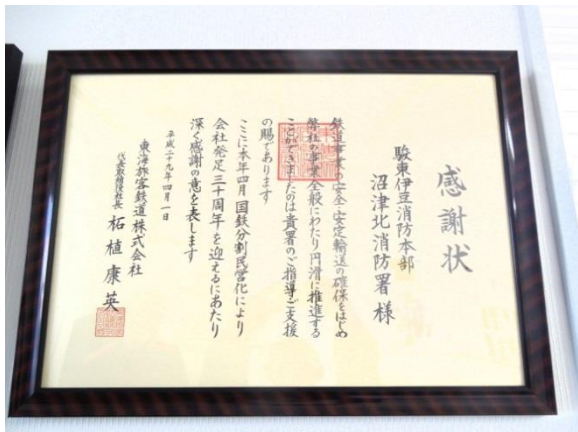 感謝状
駿東伊豆消防本部
沼津北消防署 様
鉄道事業の安全・安定輸送の確保をはじめ
弊社の事業全般にわたり円滑に推進する
ことができましたのは貴署のご指導ご支援
の賜であります
ここに本年四月国鉄分割民営化により
会社発足三十周年を迎えるにあたり
深く感謝の意を表します
平成二十九年四月一日
東海旅客鉄道株式会社
代表取締役社長 柘植康英